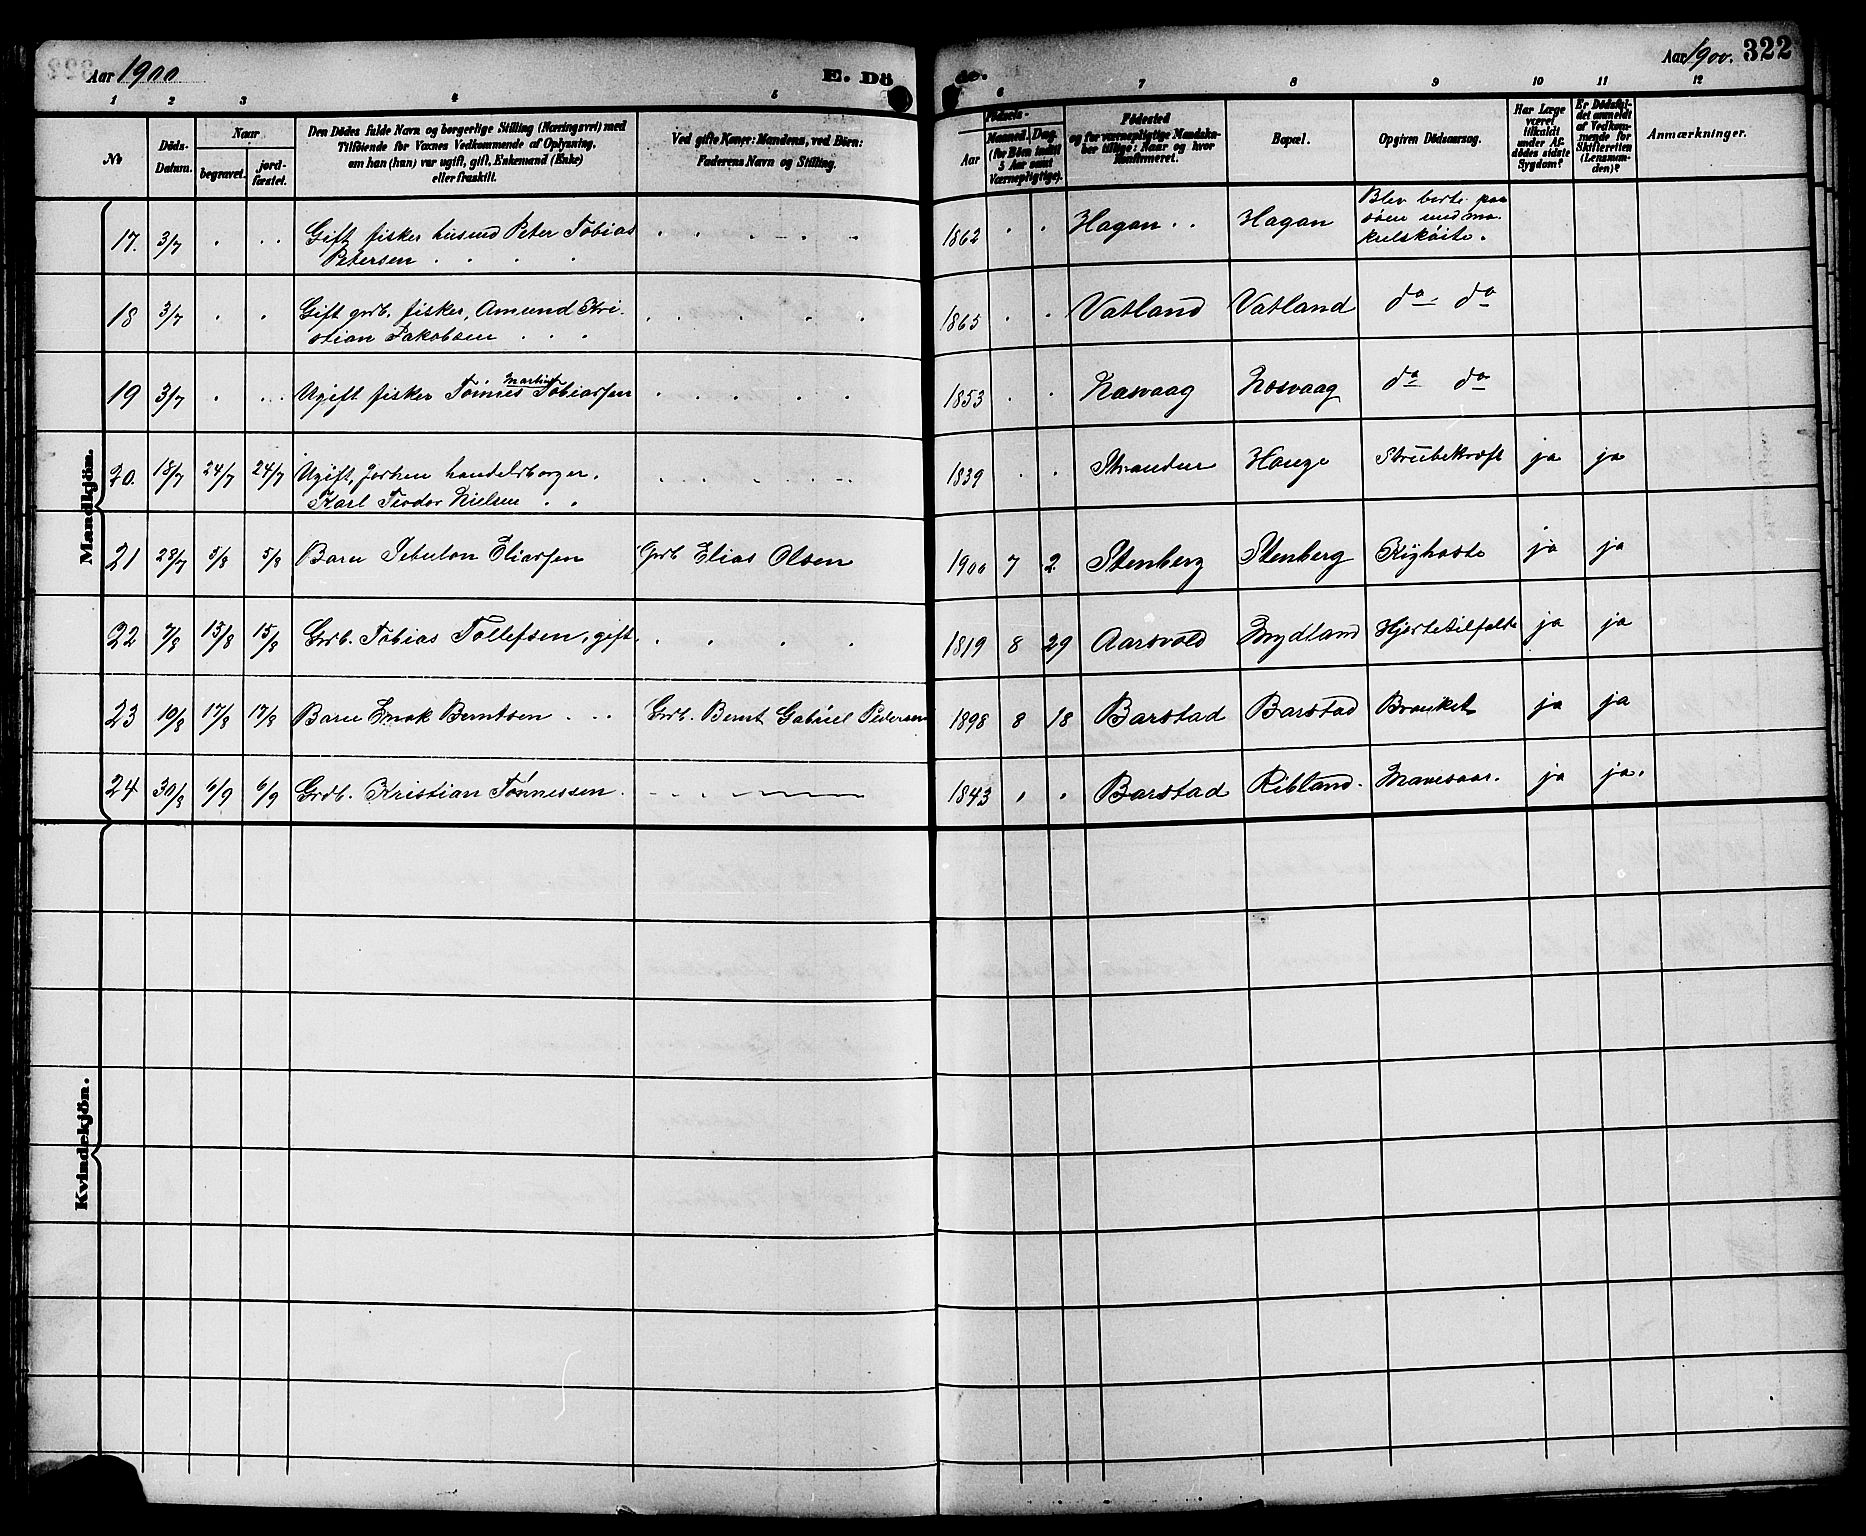 Aar 1900
E. Dö
de.
Aar 1900. 322
1 2 3 4 5 6 7 8 9 10 11 12
No
Döds-Datum.
Naar
begravet.
jord-fæstet.
Den Dödes fulde Navn og borgerlige Stilling (Næringsvei) med
Tilföiende for Voxnes Vedkommende af Oplysning,
om han (hun) var ugift, gift, Enkemand (Enke)
eller fraskilt.
Ved gifte Koner: Mandens, ved Börn:
Faderens Navn og Stilling.
Födsels-
Aar
Maaned. Dag.
(for Börn indtil
5 Aar samt
Værnepligtige).
Födested
og for værnepligtige Mandskaber tillige: Naar og hvor
konfirmeret.
Bopæl.
Opgiven Dödsaarsag.
Har Læge
været
tilkaldt
under Afdödes sidste
Sygdom?
Er Dödsfaldet anmeldt
af Vedkommende for
Skifteretten
(Lensmanden)?
Anmærkninger.
Mandkjön.
17. 3/7 Gift fisker husmd Peter Tobias 1862 Hagan Hagan Blev borte paa
Petersen söen med ma-
krelskøite.
18 3/7 Gift grb. fisker, Amund Kri- 1865 Vatland Vatland do do
stian Jakobsen
19 3/7 Ugift fisker Tønnes Martin Tobiassen 1853 Rasvaag Rosvaag do do
20. 18/7 24/7 24/7 Ugift, forhen handelsborger, 1839 Stranden Hauge Strubekræft ja ja
Karl Teodor Nielsen
21 28/7 5/8 5/8 Barn Sebulon Eliassen Grb Elias Olsen 1900 7 2 Stenberg Stenberg Kighoste ja ja
22 7/8 15/8 15/8 Grb. Tobias Tollefsen, gift 1819 8 29 Aarsvold Mydland Hjertetilfælde ja ja
23 10/8 17/8 17/8 Barn Enok Berntsen Grb. Bernt Gabriel Pedersen 1898 8 18 Barstad Barstad Bronket ja ja
24 30/8 6/9 6/9 Grdb. Kristian Tønnessen 1843 Barstad Ribland. Mavesaar. ja ja.
Kvindekjön.